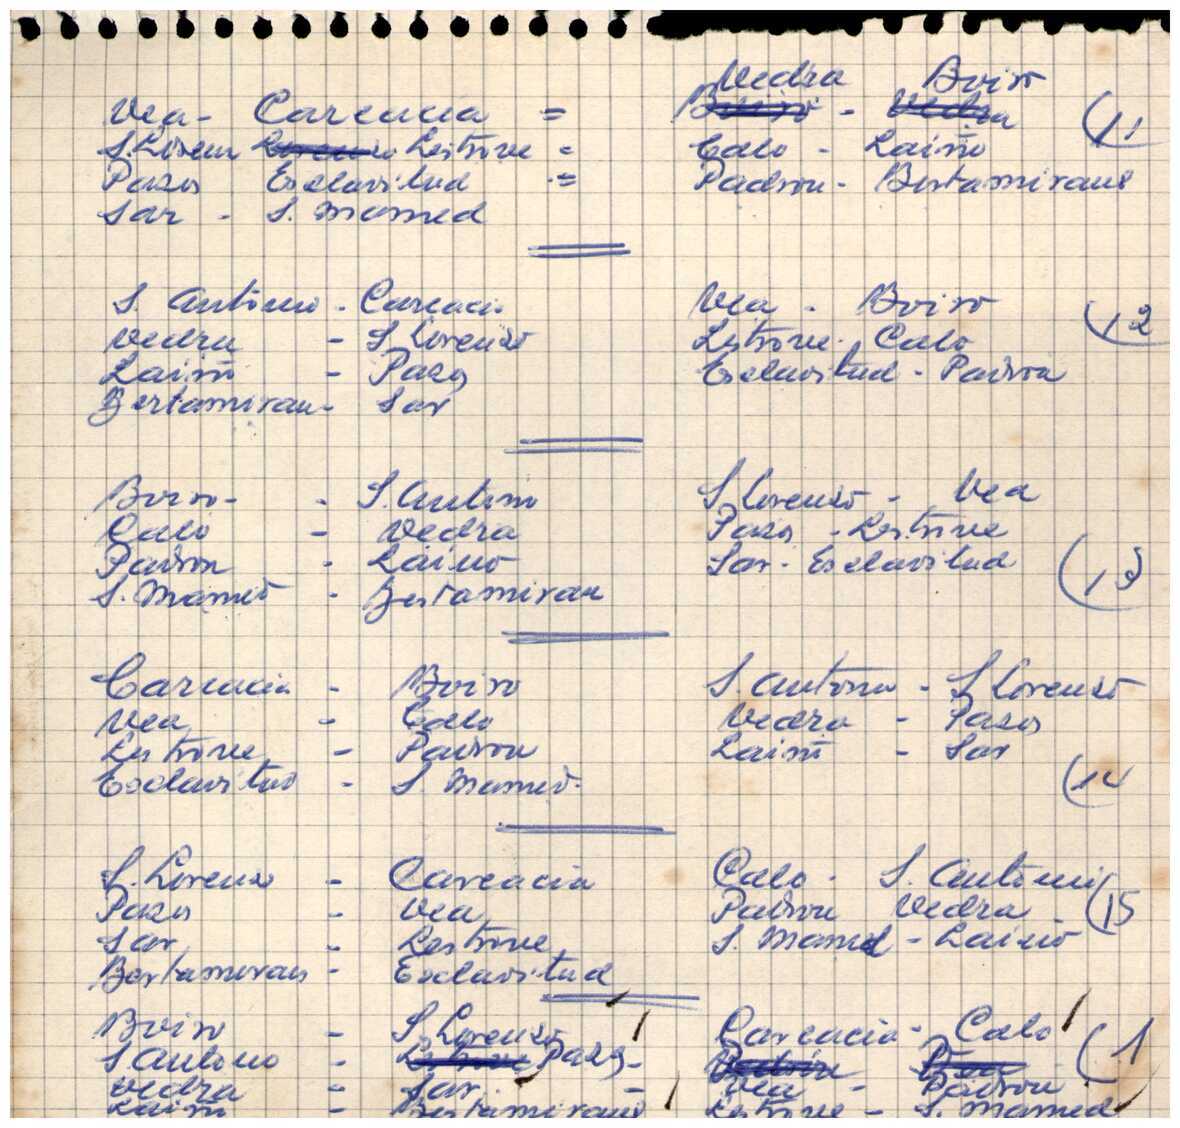 Vedra Boiro
Vea - Carcacia =
(11
S. Loren Lestrove = Calo - Laiño
Pazos Esclavitud = Padron - Bertamirans
Sar - S. Mamed
S. Antonio - Carcacia Vea - Boiro
(12
Vedra - S Lorenzo Lestrove - Calo
Laiño - Pazos Esclavitud - Padron
Bertamiran - Sar
Boiro - - S. Antonio S Lorenzo - Vea
Calo - Vedra Pazos - Lestrove
Padron - Laiño Sar - Esclavitud
(13
S. Mamed - Bertamiran
Carcacia - Boiro S. Antonio - S Lorenzo
Vea - Calo Vedra - Pazos
Lestrove - Padron Laiño - Sar
Esclavitud - S. Mamed.
(14
S. Lorenzo - Carcacia Calo - S. Antonio
Pazos - Vea Padron Vedra -
(15
Sar - Lestrove S. Mamed - Laiño
Bertamirans - Esclavitud
Boiro - S. Lorenzo Carcacia - Calo
(1
S. Antonio - Pazos -
Vedra - Sar - Vea - Padron
Laiño - Bertamirans Lestrove - S. Mamed